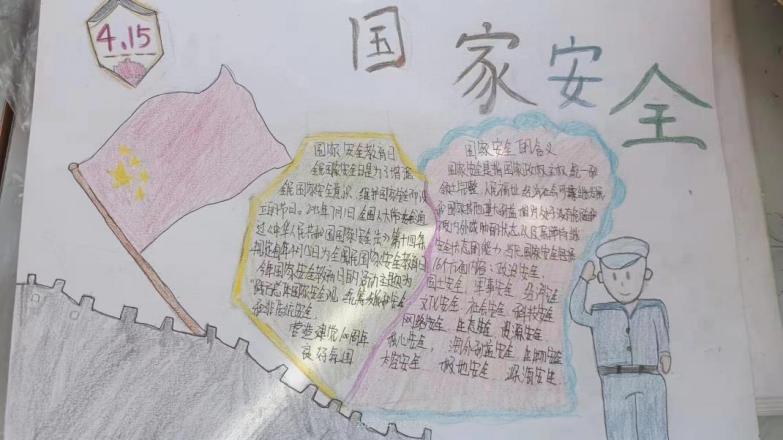 4.15
国家安全
国家安全教育日
全民国家安全日是为了增强
全民国家安全意识,维护国家安全而设
立的节日。2015年7月1日全国人大常委会通
过《中华人民共和国国家安全法》第十四条
规定每年4月15日为全民国家安全教育日
今年国家安全教育日的活动主题为
统筹发展和安全
统安全
营造建党100周年
良好氛围
国家安全的含义
国家安全是指国家政权、主权、统一和
领土完整、人民福祉、经济社会可持续发展
和国家其他重大利益相对处于没有危险和
不受内外威胁的状态以及保障持续
安全状态的能力 国家安全包括
16个方面内容:政治安全
国土安全 军事安全 经济安全
文化安全 社会安全 科技安全
网络安全 生态安全 资源安全
核心安全, 海外利益安全
太空安全 极地安全 深海安全